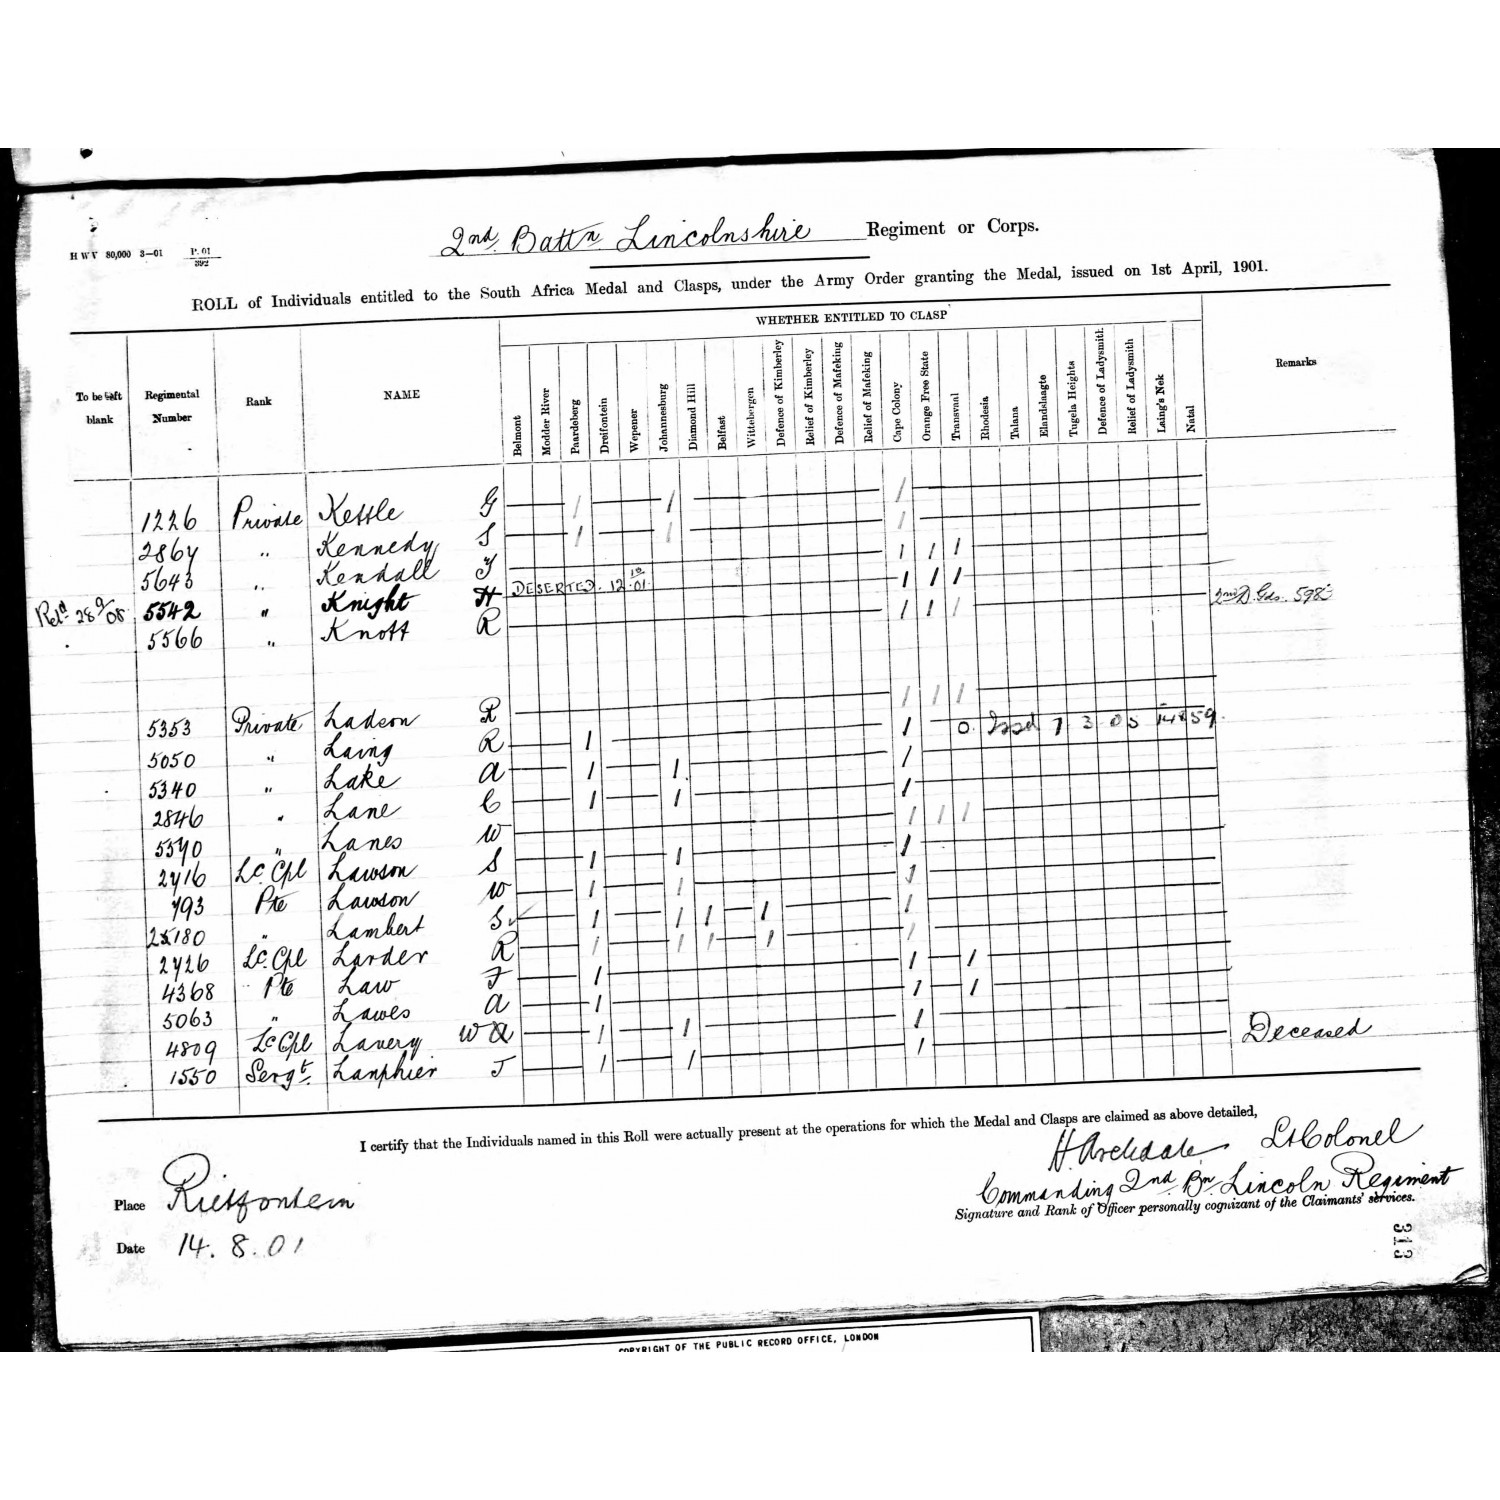 H W V 80,000 3—01 P. 01 / 392
2nd. Battn. Lincolnshire Regiment or Corps.
ROLL of Individuals entitled to the South Africa Medal and Clasps, under the Army Order granting the Medal, issued on 1st April, 1901.
WHETHER ENTITLED TO CLASP
To be left blank
Regimental Number
Rank
NAME
Belmont
Modder River
Paardeberg
Dreifontein
Wepener
Johannesburg
Diamond Hill
Belfast
Wittebergen
Defence of Kimberley
Relief of Kimberley
Defence of Mafeking
Relief of Mafeking
Cape Colony
Orange Free State
Transvaal
Rhodesia
Talana
Elandslaagte
Tugela Heights
Defence of Ladysmith
Relief of Ladysmith
Laing's Nek
Natal
Remarks
1226 Private Kettle G
2864 " Kennedy S
5643 " Kendall
DESERTED. 12 10 01.
5542 " Knight H 2nd D. Gds.
5566 " Knott R
5353 Private Ladson R
5050 " Laing R 7 3 05
5340 " Lake A
2846 " Lane C
" Lanes W
2416 Lc. Cpl Lawson S
793 Pte Lawson W
" Lambert S
2426 Lc. Cpl Larder R
4368 Pte Law F
5063 " Lawes A
4809 Lc Cpl Lavery W Deceased
1550 Sergt. Lanphier J
I certify that the Individuals named in this Roll were actually present at the operations for which the Medal and Clasps are claimed as above detailed,
H. Archdale Lt Colonel
Commanding 2nd. Bn. Lincoln Regiment
Signature and Rank of Officer personally cognizant of the Claimants' services.
Place Rietfontein
Date 14. 8. 01
313
COPYRIGHT OF THE PUBLIC RECORD OFFICE, LONDON